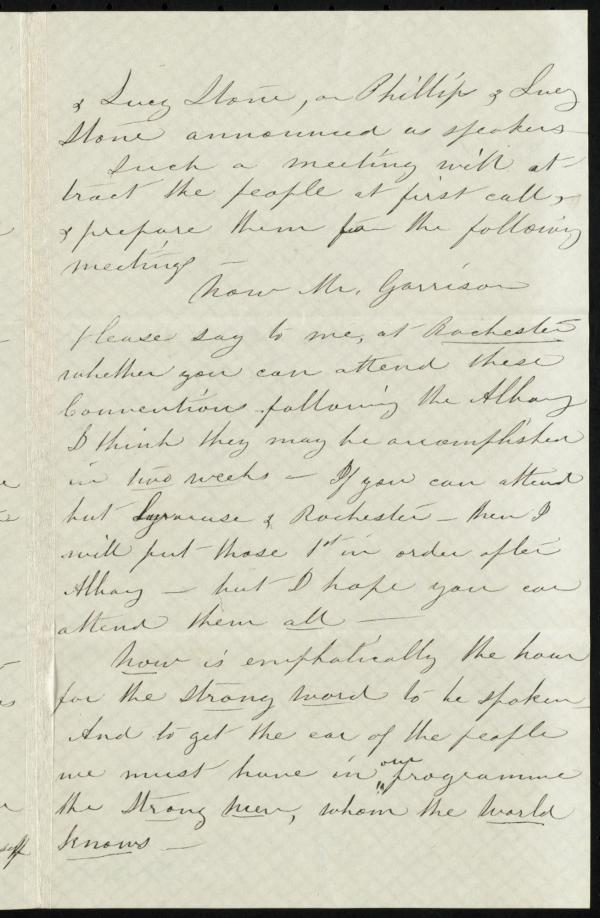 & Lucy Stone, or Phillips & Lucy
Stone announced as speakers
Such a meeting will at-
tract the people at first call,
& prepare them for the following
meetings –
Now Mr. Garrison
please say to me, at Rochester
whether you can attend these
Conventions following the Albany
I think they may be accomplished
in two weeks – If you can attend
but Syracuse & Rochester – then I
will put those 1st in order after
Albany – but I hope you can
attend them all –
Now is emphatically the hour
for the strong word to be spoken
And to get the ear of the people
we must have in our programme
the Strong men, whom the world
knows –